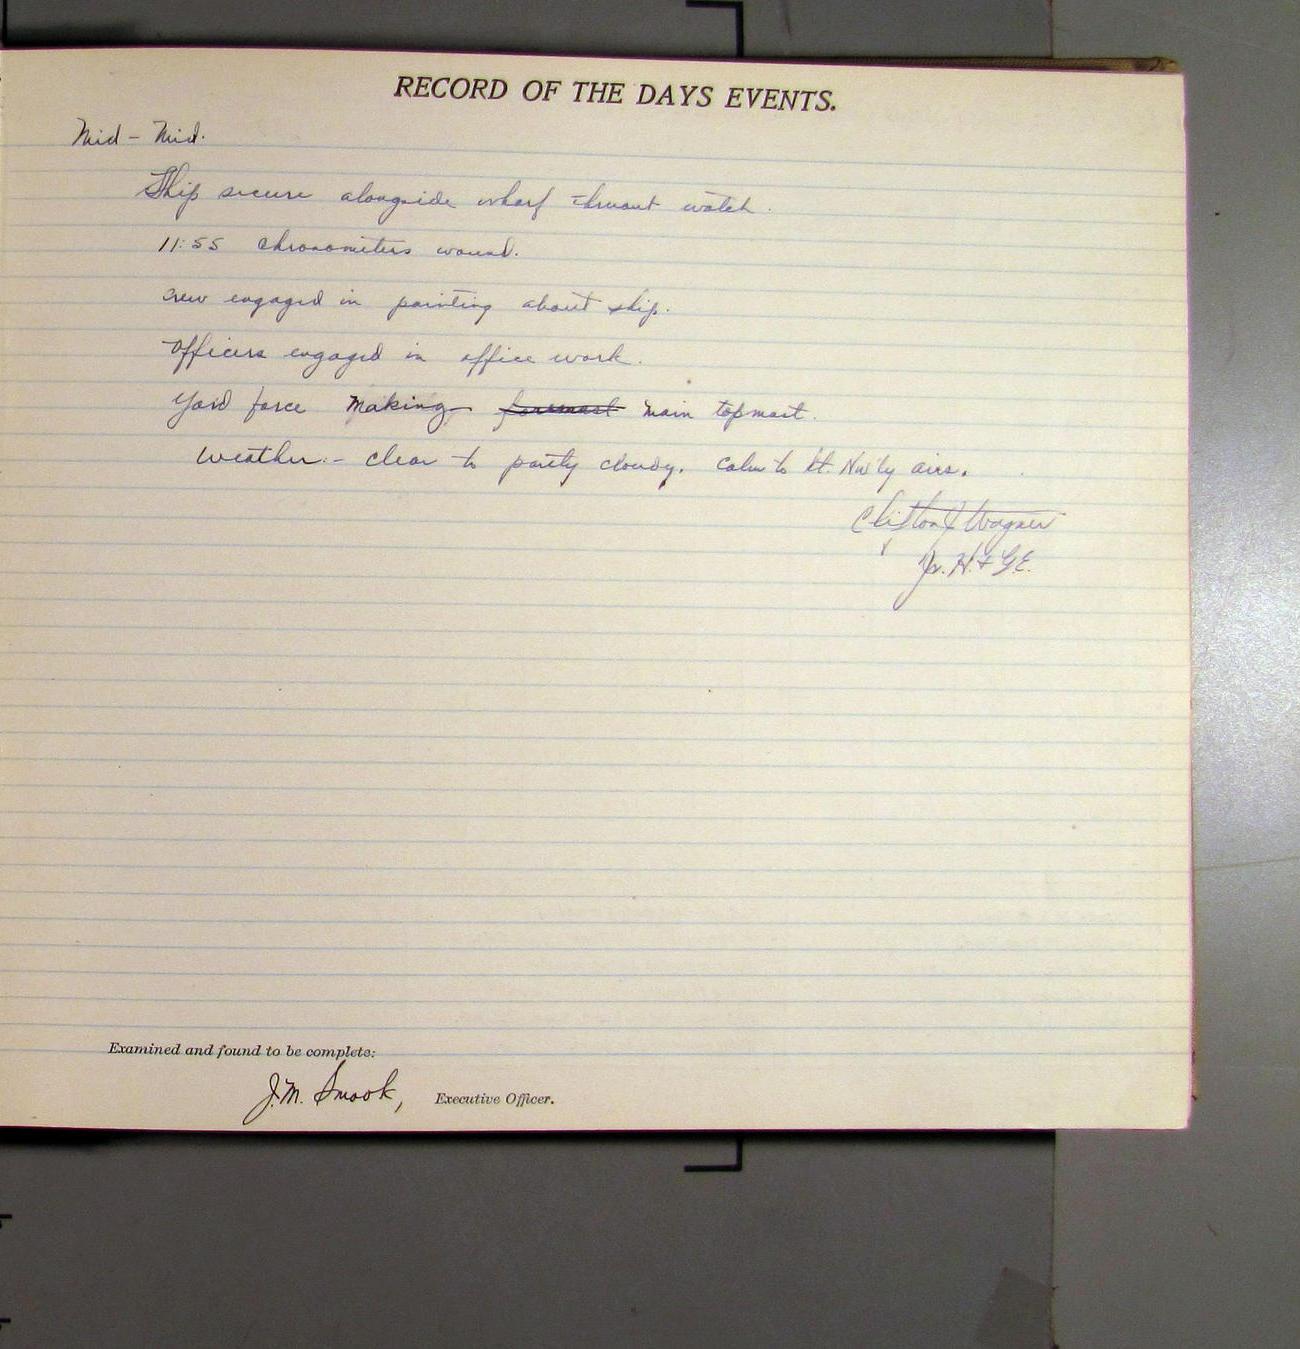 RECORD OF THE DAYS EVENTS.
Mid - Mid.
Ship secure alongside wharf thruout watch.
11:55 Chronometers wound.
Crew engaged in painting about ship.
Officers engaged in office work.
Yard force making foremast main topmast.
Weather:- clear to partly cloudy. Calm to lt. Nw'ly airs.
Clifton J Wagner
Jr. H. & G.E.
Examined and found to be complete:
J.M. Smook, Executive Officer.